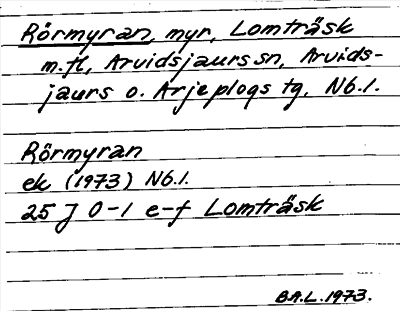 Rörmyran, myr, Lomträsk
m.fl, Arvidsjaurs sn, Arvids-
jaurs o. Arjeplogs tg, Nb.l.
Rörmyran
ek (1973) Nb.l.
25 J 0-1 e-f Lomträsk
B.A.L. 1973.